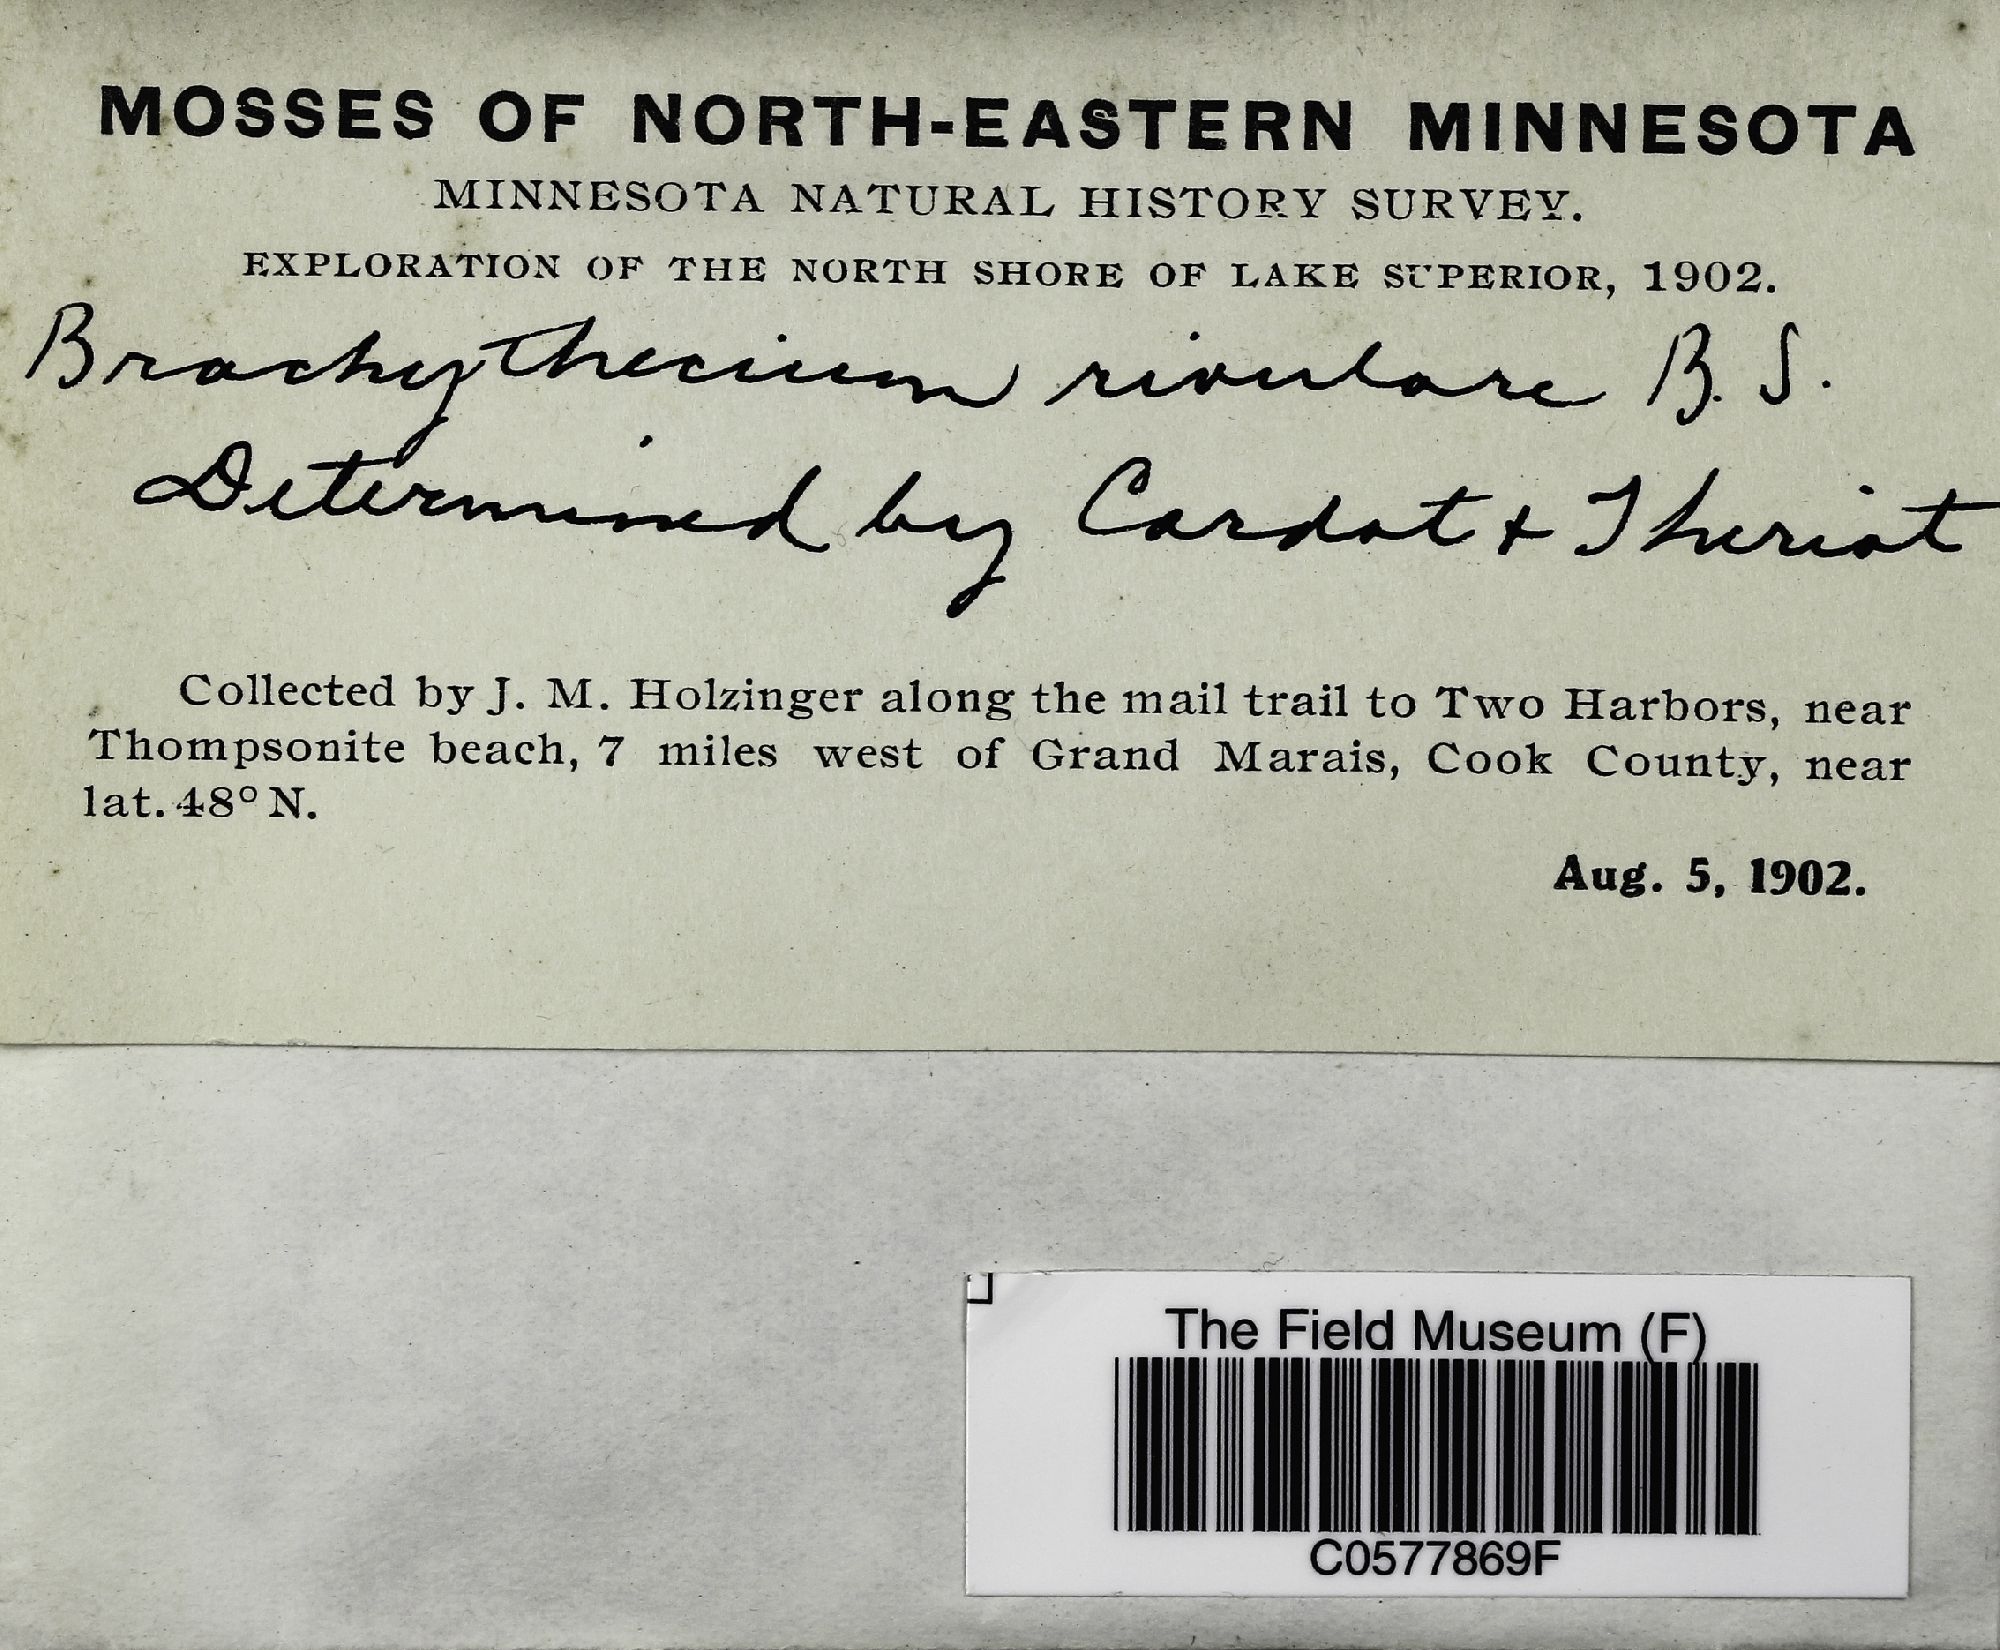 MOSSES OF NORTH-EASTERN MINNESOTA
MINNESOTA NATURAL HISTORY SURVEY.
EXPLORATION OF THE NORTH SHORE OF LAKE SUPERIOR, 1902.
Brachythecium rivulare B. S.
Determined by Cardot + Theriot
Collected by J. M. Holzinger along the mail trail to Two Harbors, near
Thompsonite beach, 7 miles west of Grand Marais, Cook County, near
lat. 48° N.
Aug. 5, 1902.
The Field Museum (F)
C0577869F